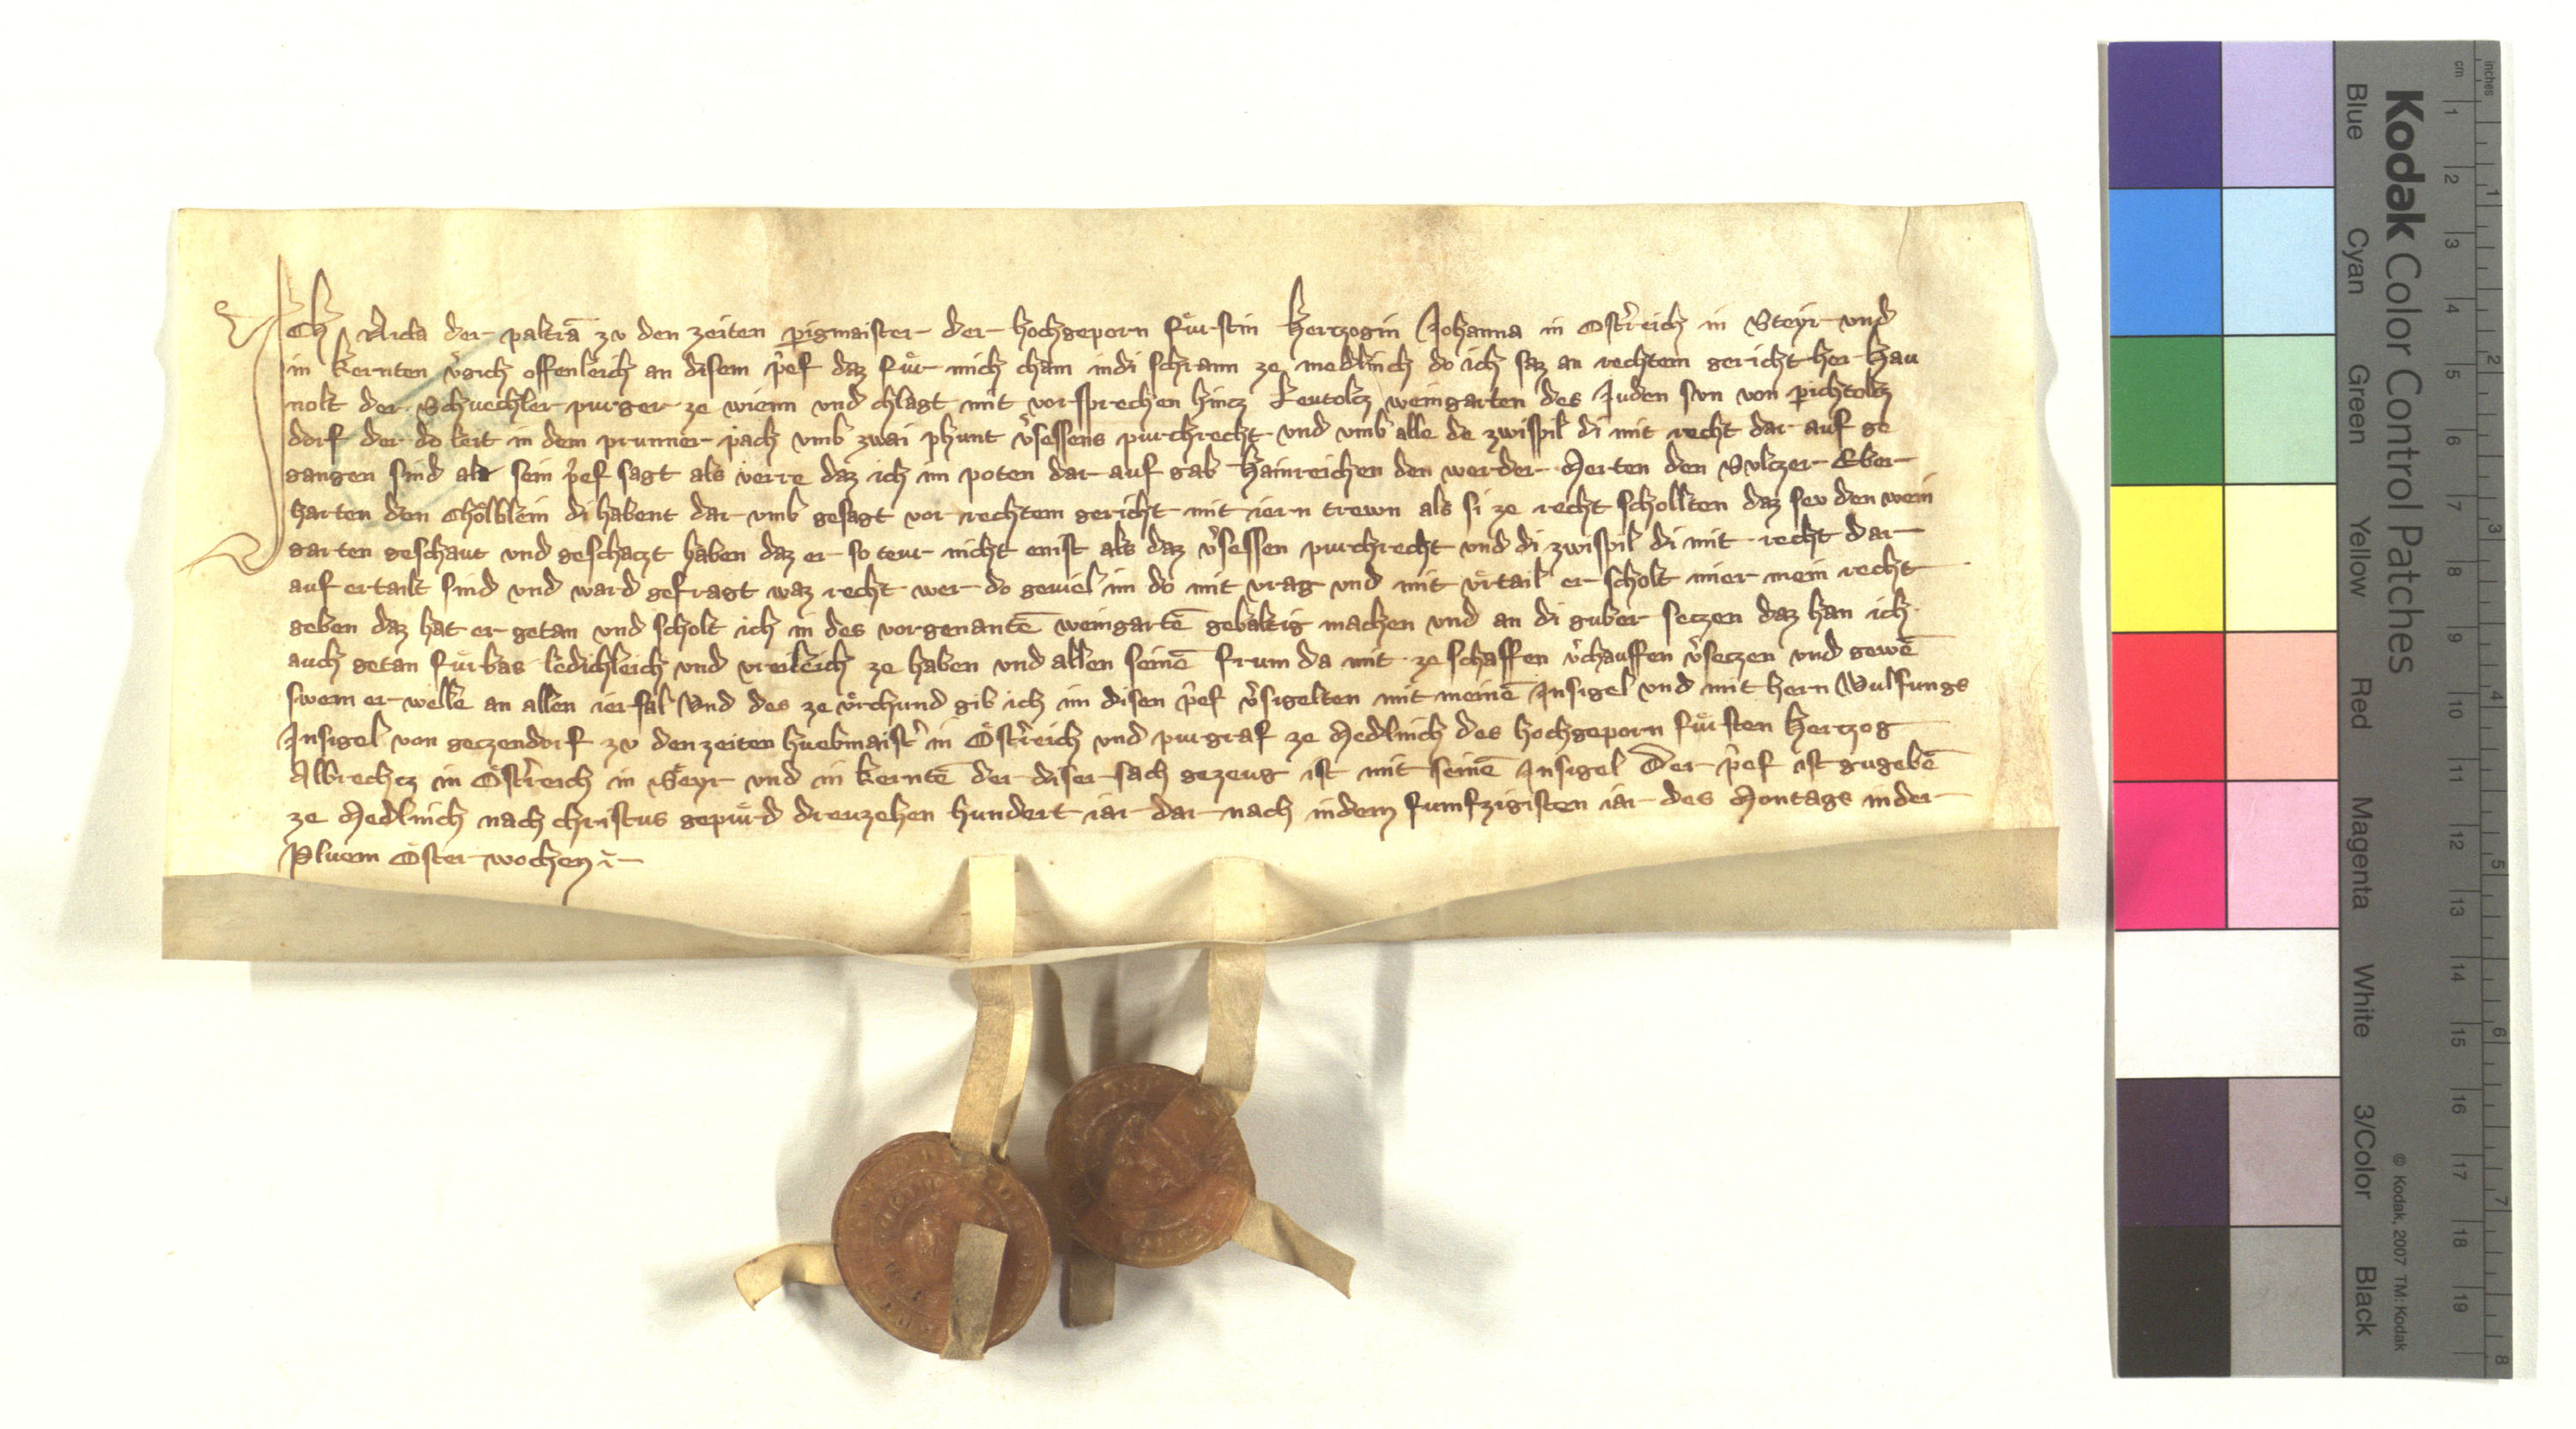 Ich der paltrā zv den zeiten pigmaister der hochgeporn fuͤrstin Hertzogin Johanna in Ostr̄eich in Steyr vnd
in kernten v̄gich offenleich an disem p̄ef daz fuͤr mich cham indi schrann ze medlinch do ich saz an rechtem gericht her Hau
nolt der Schuechler purger ze wienn vnd chlagt mit vorsprechen hincz Leutolcz weingarten des Juden svn von pichtoltz
dorf der do leit in dem prunner pach vmb zwai phunt v̄sessens purchrecht vnd vmb alle de zwispil di mit recht dar auf ge
gangen sind als sein p̄ef sagt als verre daz ich im poten dar auf gab Hainreichen den werder Merten den Sulczer Eber
harten den Choͤlblein di habent dar vmb gesagt vor rechtem gericht mit iern trewn als si ze recht schollten daz sev den wein
garten geschaut vnd geschaczt haben daz er so teur nicht enist als daz v̄sessen purchrecht vnd di zwispil di mit recht dar
auf ertailt sind vnd ward gefragt waz recht wer do geuiel im do mit vrag vnd mit vrtail er scholt mier mein recht
geben daz hat er getan vnd scholt ich in des vorgenantē weingartē gebaltig machen vnd an di guber seczen daz han ich
auch getan fuͤrbas ledichleich vnd vreileich ze haben vnd allen seinē frum da mit ze schaffen v̄chauffen v̄seczen vnd gewē
swem er welle an allen iersal Vnd des ze vrchund gib ich im disen p̄ef v̄sigelten mit meinē Insigel vnd mit hern Wulfungs
Insigel von geczendorf zv den zeiten huebmaist̄ in Ostr̄eich vnd purgraf ze Medlinch des hochgeporn fuͤrsten Hertzog
Albrechcz in Ostr̄eich in Steyr vnd in kerntē der diser sach gezeug ist mit seinē Insigel Der p̄ef ist gugebē
ze Medlinch nach christus gepuͤrd dreuzehen hundert iar dar nach indem fumfzigisten iar des Montags inder
Pluem Oster wochen
Kodak Color Control Patches
Blue Cyan Green Yellow Red Magenta White 3/Color Black
© Kodak, 2007 TM: Kodak
cm 1 2 3 4 5 6 7 8 9 10 11 12 13 14 15 16 17 18 19
inches 1 2 3 4 5 6 7 8